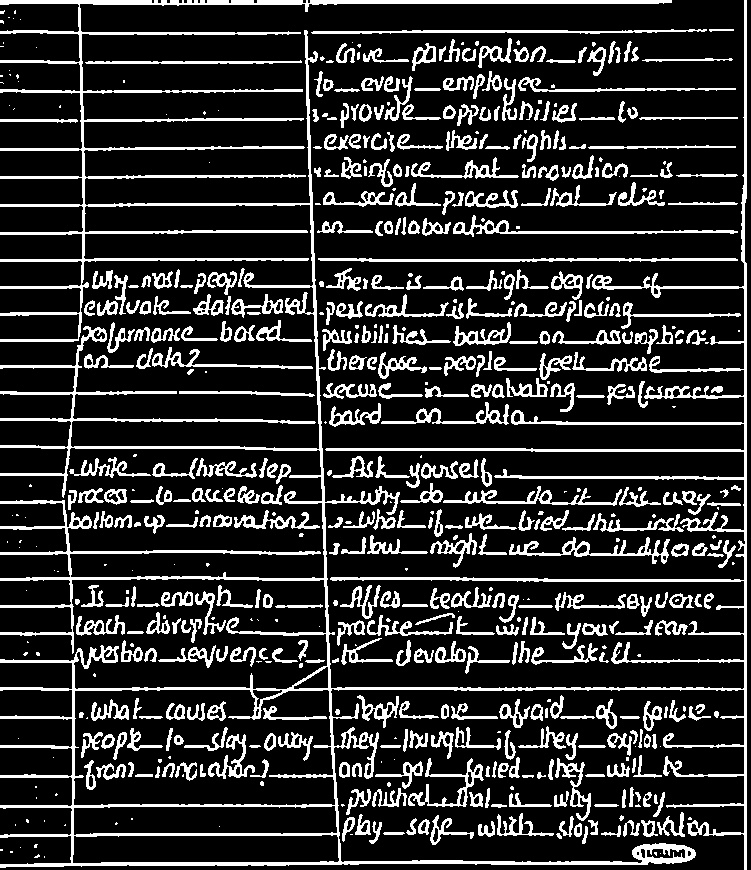 2. Give participation rights
to every employee.
3. provide opportunities to
exercise their rights.
4. Reinforce that innovation is
a social process that relies
on collaboration.
. Why most people
evaluate data-based
performance based
on data?
. There is a high degree of
personal risk in exploring
possibilities based on assumptions,
therefore, people feels more
secure in evaluating performance
based on data.
. Write a three-step
process to accelerate
bottom-up innovation?
. Ask yourself,
1. why do we do it this way?
2. What if we tried this instead?
3. How might we do it differently?
. Is it enough to
teach disruptive
question sequence?
. After teaching the sequence,
practice it with your team
to develop the skill.
. What causes the
people to stay away
from innovation?
. People are afraid of failure.
They thought if they explore
and got failed, they will be
punished, that is why they
play safe, which stops innovation.